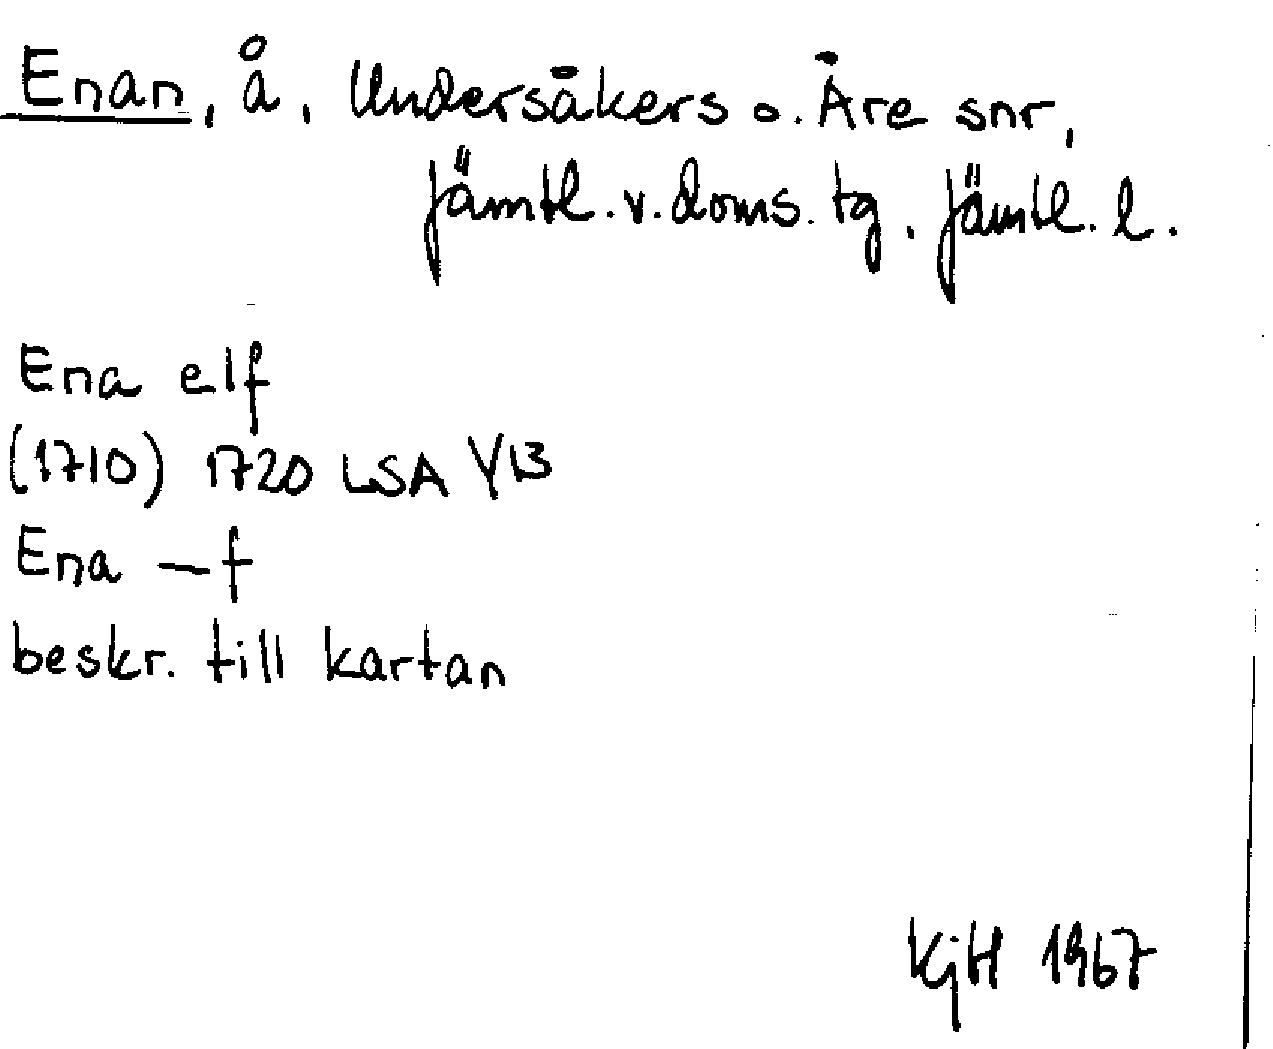 Enan, å, Undersåkers o. Åre snr,
Jämtl. v. doms. tg, Jämtl. l.
Ena elf
(1710) 1720 LSA Y13
Ena — f
beskr. till kartan
KjH 1967